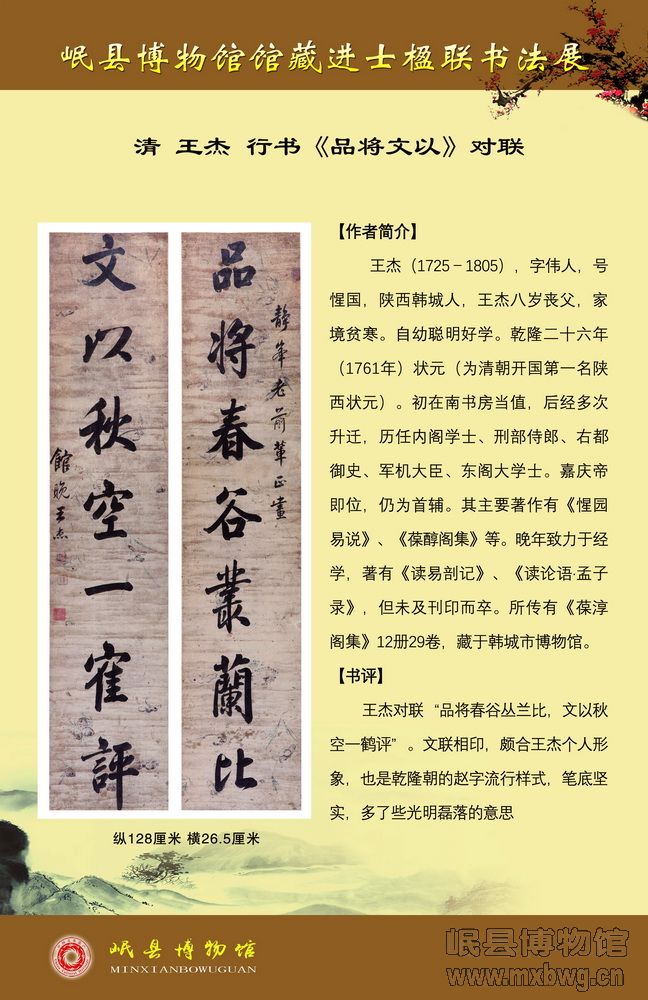 岷县博物馆馆藏进士楹联书法展
清 王杰 行书《品将文以》对联
品将春谷叢蘭比
静峯老前輩正畫
文以秋空一寉評
館晚王杰
纵128厘米 横26.5厘米
【作者简介】
王杰（1725－1805），字伟人，号
惺国，陕西韩城人，王杰八岁丧父，家
境贫寒。自幼聪明好学。乾隆二十六年
（1761年）状元（为清朝开国第一名陕
西状元）。初在南书房当值，后经多次
升迁，历任内阁学士、刑部侍郎、右都
御史、军机大臣、东阁大学士。嘉庆帝
即位，仍为首辅。其主要著作有《惺园
易说》、《葆醇阁集》等。晚年致力于经
学，著有《读易剖记》、《读论语·孟子
录》，但未及刊印而卒。所传有《葆淳
阁集》12册29卷，藏于韩城市博物馆。
【书评】
王杰对联“品将春谷丛兰比，文以秋
空一鹤评”。文联相印，颇合王杰个人形
象，也是乾隆朝的赵字流行样式，笔底坚
实，多了些光明磊落的意思
岷县博物馆
MINXIANBOWUGUAN
岷县博物馆
www.mxbwg.cn